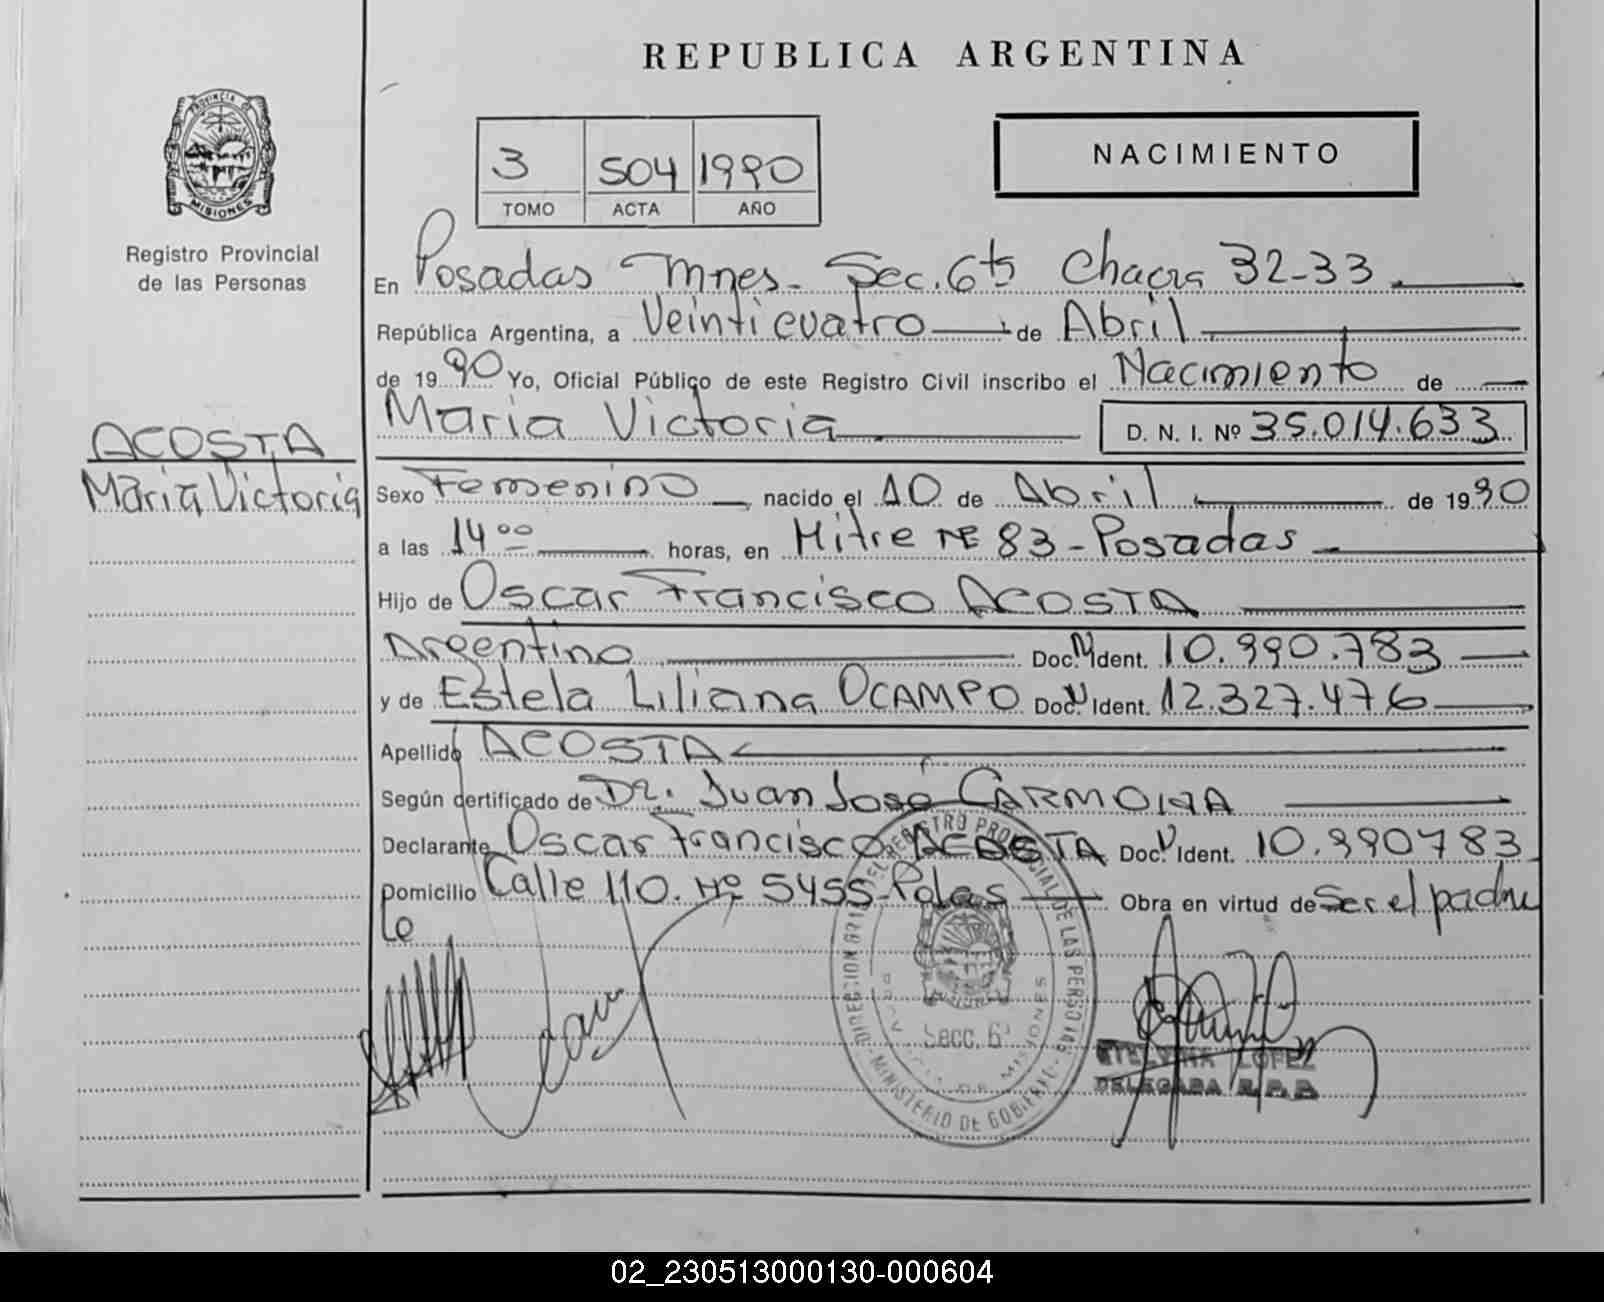 REPUBLICA ARGENTINA
PROVINCIA DE
MISIONES
Registro Provincial
de las Personas
NACIMIENTO
3 504 1990
TOMO ACTA AÑO
En Posadas Mnes. Sec. 6ta Chacra 32-33
República Argentina, a Veinticuatro de Abril
de 1990 Yo, Oficial Público de este Registro Civil inscribo el Nacimiento de
Maria Victoria D. N. I. Nº 35.014.633
ACOSTA
Maria Victoria
Sexo Femenino nacido el 10 de Abril de 1990
a las 14⁰⁰ horas, en Mitre Nº 83 - Posadas
Hijo de Oscar Francisco ACOSTA
Argentino Doc. N Ident. 10.990.783
y de Estela Liliana OCAMPO Doc. N Ident. 12.327.476
Apellido ACOSTA
Según certificado de Dr. Juan José CARMONA
Declarante Oscar Francisco ACOSTA Doc. N Ident. 10.990783
Domicilio Calle 110. Nº 5455 - Pdas Obra en virtud de Ser el padre
DIRECCION GRAL. DEL REGISTRO PROVINCIAL DE LAS PERSONAS
PROV. DE MISIONES
Secc. 6ª
MINISTERIO DE GOBIERNO
ETELVINA LOPEZ
DELEGADA R.P.P.
02_230513000130-000604